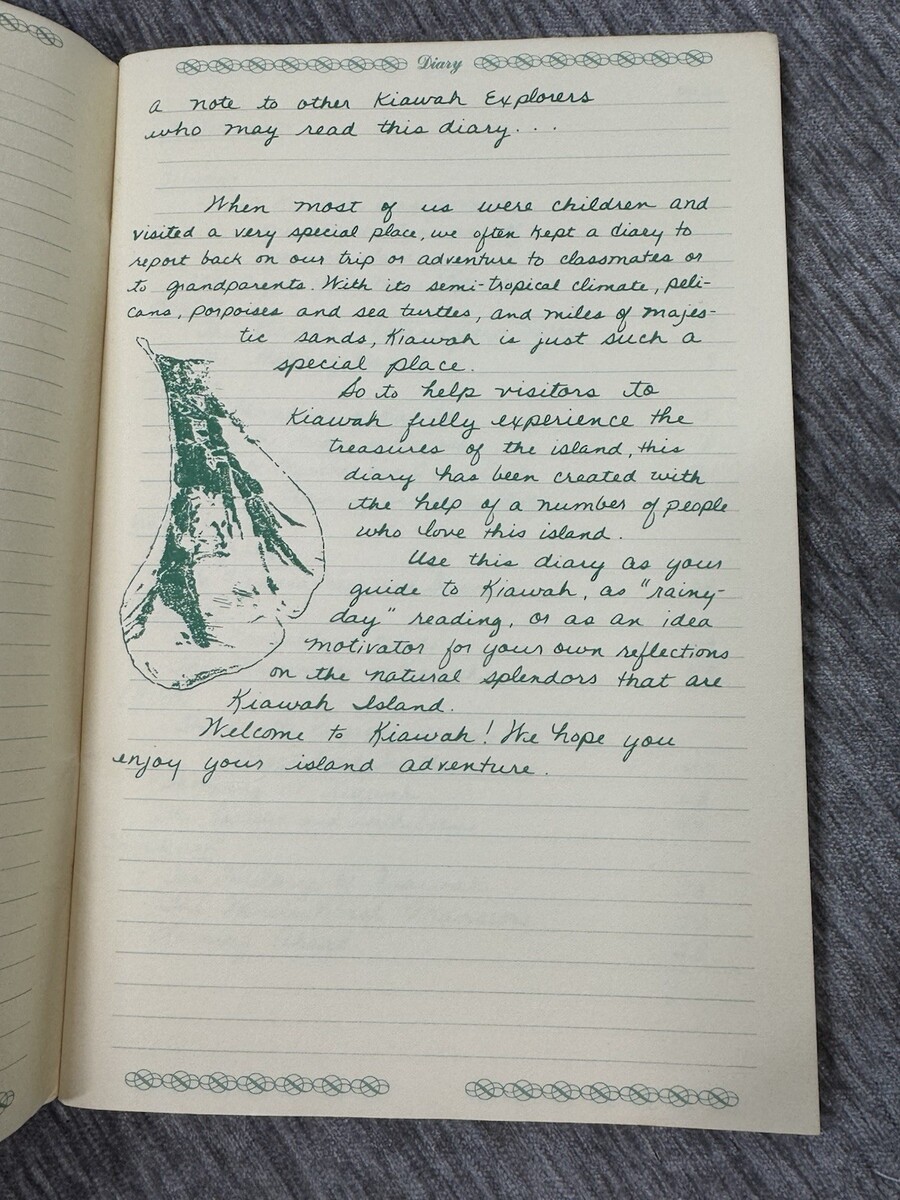 Diary
a note to other Kiawah Explorers
who may read this diary...
When most of us were children and
visited a very special place, we often kept a diary to
report back on our trip or adventure to classmates or
to grandparents. With its semi-tropical climate, peli-
cans, porpoises and sea turtles, and miles of majes-
tic sands, Kiawah is just such a
special place.
So to help visitors to
Kiawah fully experience the
treasures of the island, this
diary has been created with
the help of a number of people
who love this island.
Use this diary as your
guide to Kiawah, as "rainy-
day" reading, or as an idea
motivator for your own reflections
on the natural splendors that are
Kiawah Island.
Welcome to Kiawah! We hope you
enjoy your island adventure.